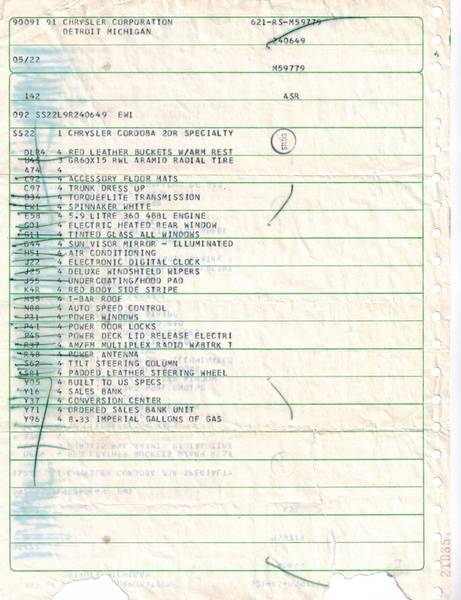 90091 91 CHRYSLER CORPORATION 621-RS-M59779
DETROIT MICHIGAN 240649
05/22 M59779
142 ASR
092 SS22L9R240649 EW1
SS22 1 CHRYSLER CORDOBA 2DR SPECIALTY
DLR4 4 RED LEATHER BUCKETS W/ARM REST
U45 3 GR60X15 RWL ARAMID RADIAL TIRE
A74 4
C92 4 ACCESSORY FLOOR MATS
C97 4 TRUNK DRESS UP
D34 4 TORQUEFLITE TRANSMISSION
EW1 4 SPINNAKER WHITE
E58 4 5.9 LITRE 360 4BBL ENGINE
G01 4 ELECTRIC HEATED REAR WINDOW
G11 4 TINTED GLASS ALL WINDOWS
G44 4 SUN VISOR MIRROR - ILLUMINATED
H51 4 AIR CONDITIONING
J22 4 ELECTRONIC DIGITAL CLOCK
J25 4 DELUXE WINDSHIELD WIPERS
J55 4 UNDERCOATING/HOOD PAD
K4R 4 RED BODY SIDE STRIPE
M55 4 T-BAR ROOF
N88 4 AUTO SPEED CONTROL
P31 4 POWER WINDOWS
P41 4 POWER DOOR LOCKS
P45 4 POWER DECK LID RELEASE ELECTRI
R37 4 AM/FM MULTIPLEX RADIO W/8TRK T
R48 4 POWER ANTENNA
S62 4 TILT STEERING COLUMN
S81 4 PADDED LEATHER STEERING WHEEL
Y05 4 BUILT TO US SPECS
Y16 4 SALES BANK
Y37 4 CONVERSION CENTER
Y71 4 ORDERED SALES BANK UNIT
Y96 4 8.33 IMPERIAL GALLONS OF GAS